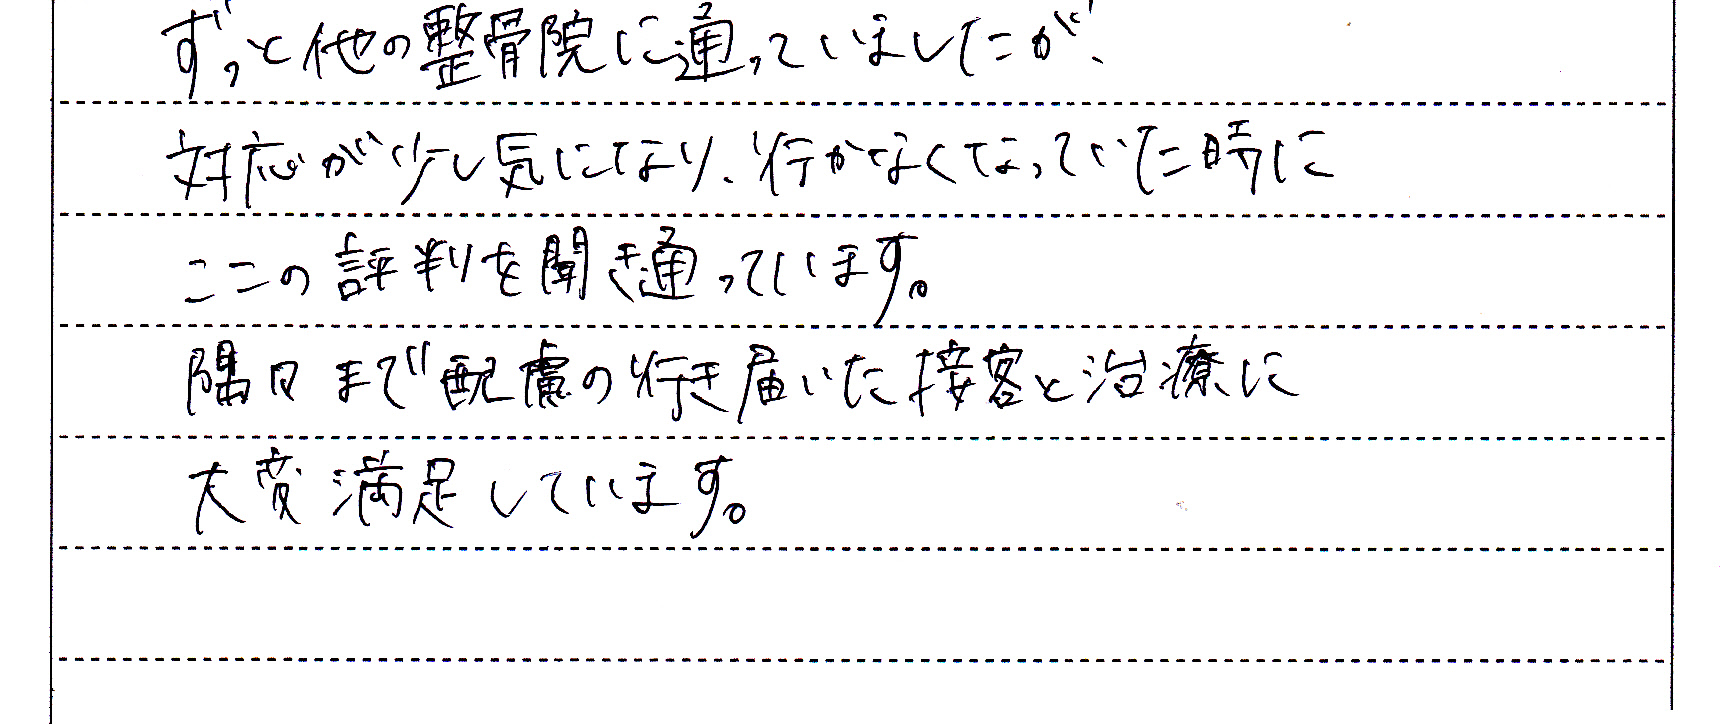 ずっと他の整骨院に通っていましたが、
対応が少し気になり、行かなくなっていた時に
ここの評判を聞き通っています。
隅々まで配慮の行き届いた接客と治療に
大変満足しています。